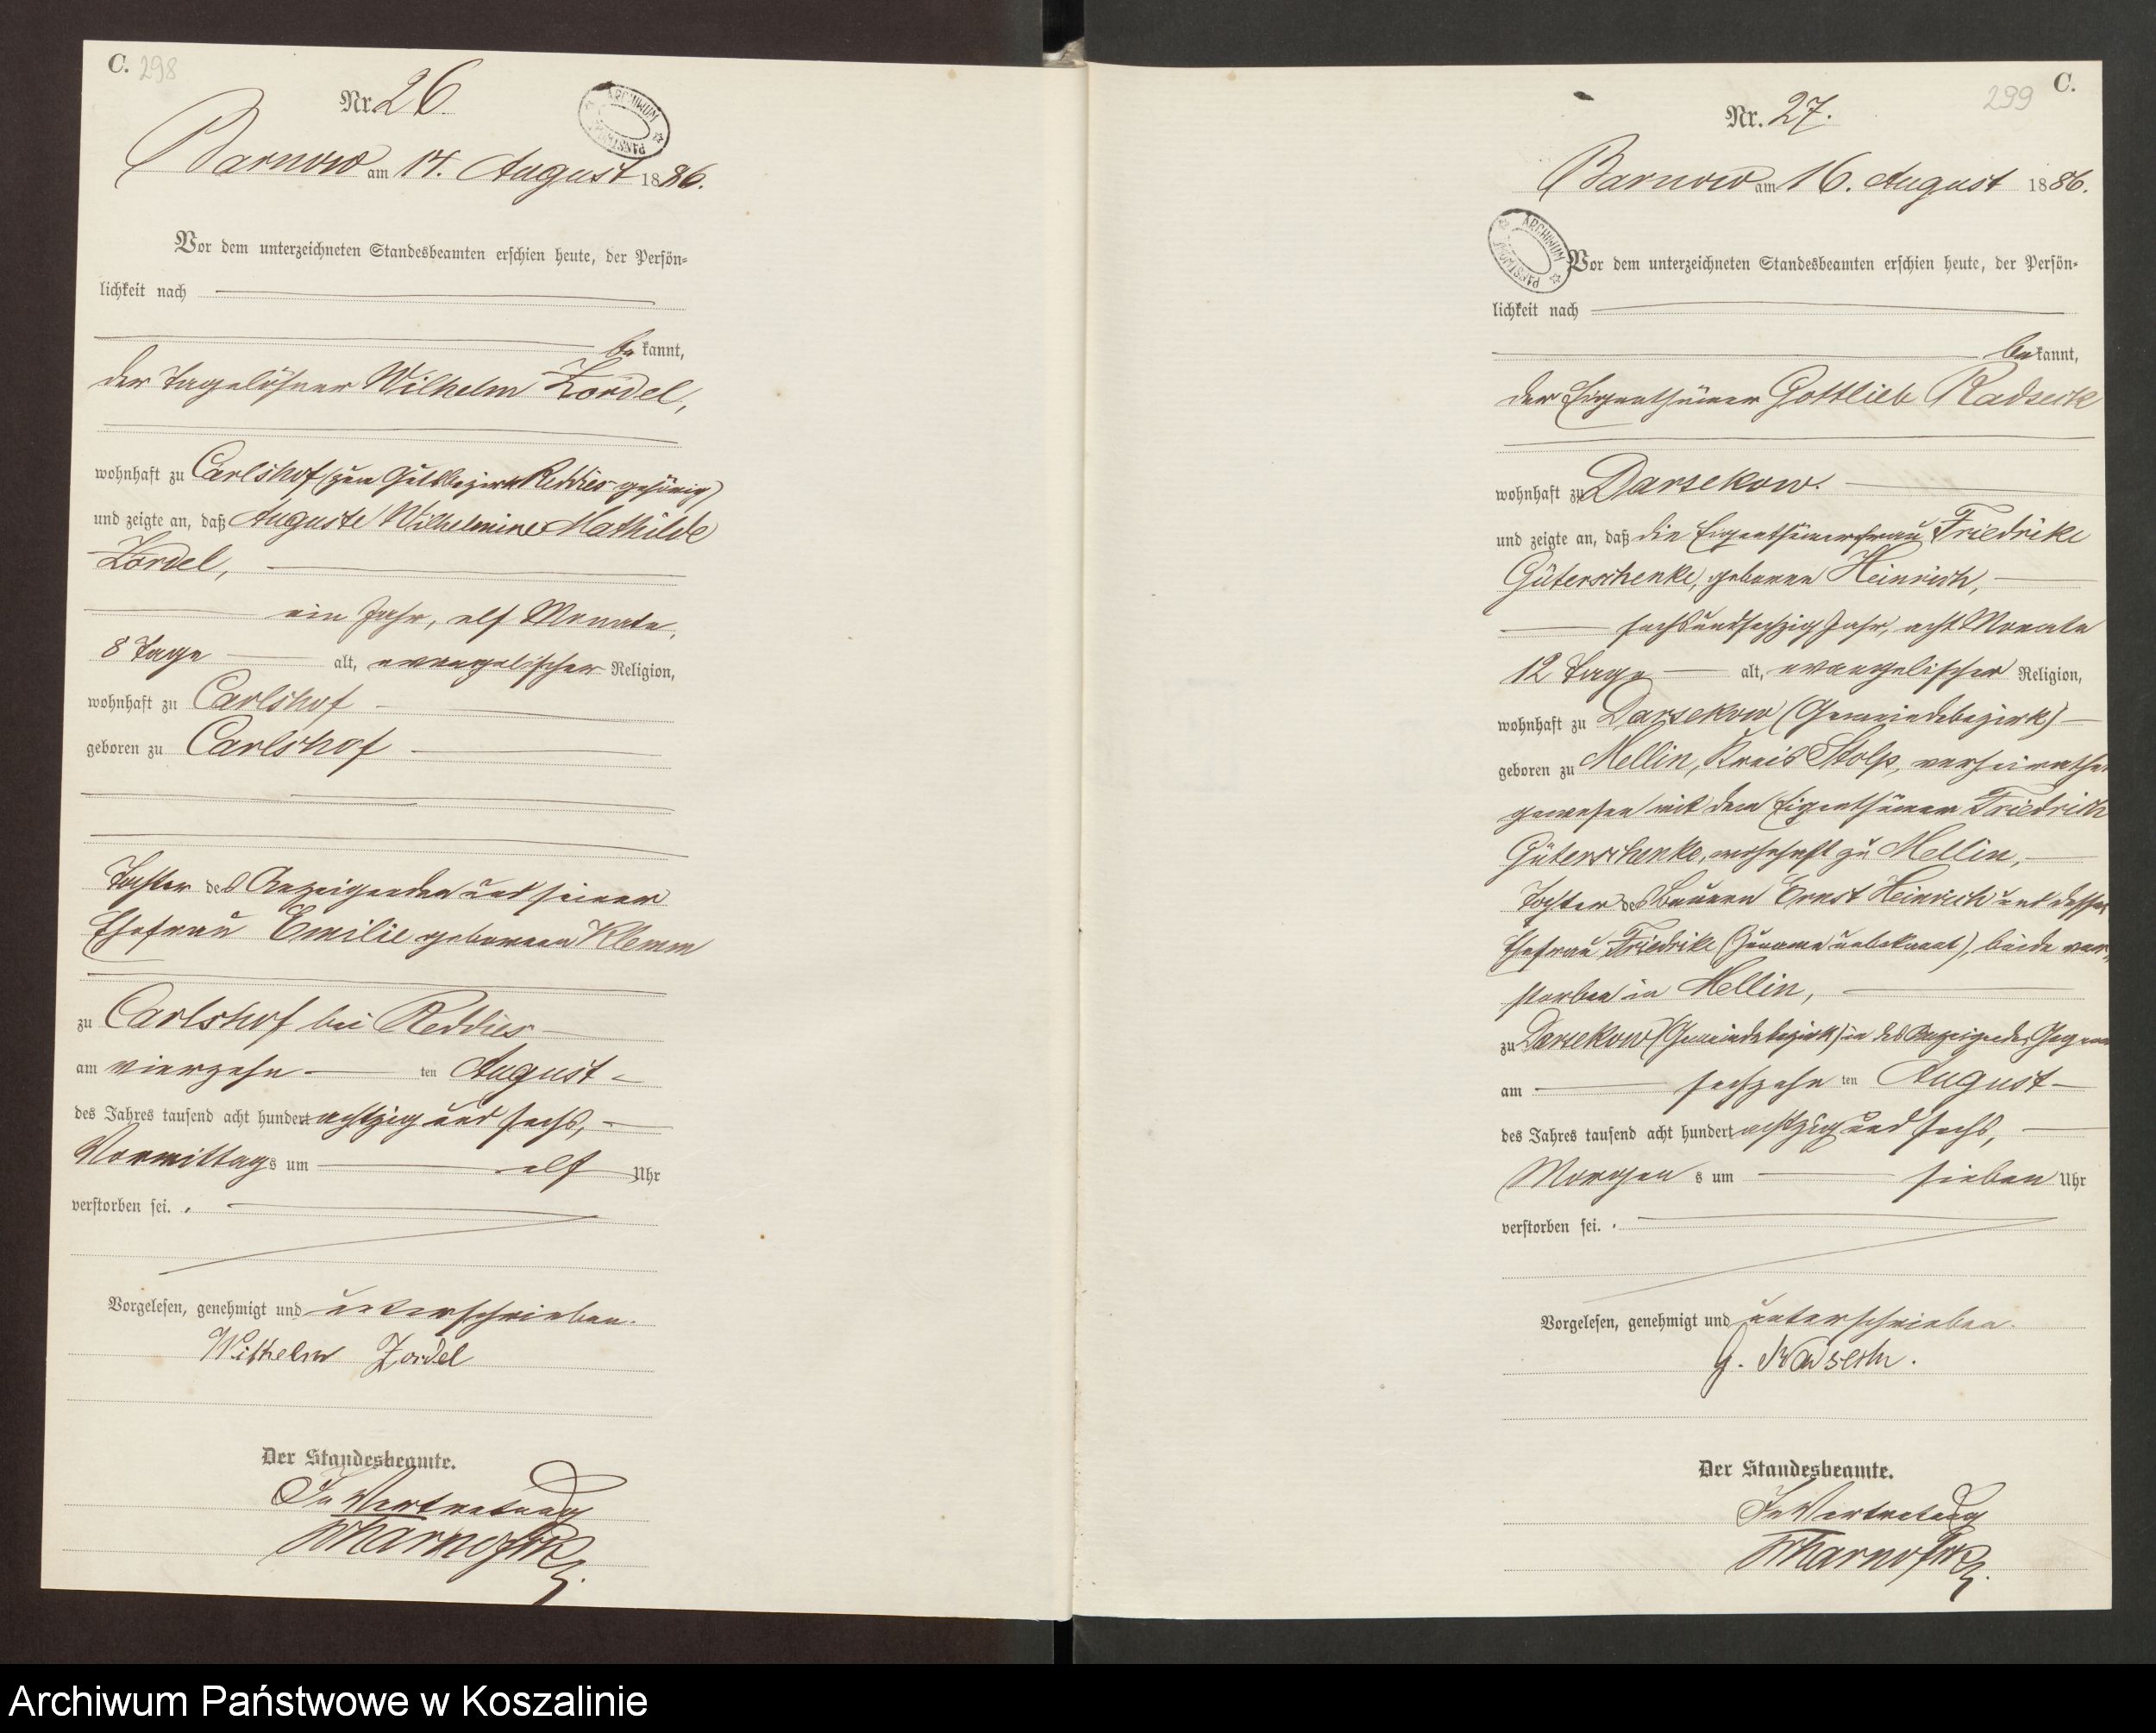 C. 298
Nr. 26.
ARCHIWUM PAŃSTWOWE
Barnow am 14. August 1886.
Vor dem unterzeichneten Standesbeamten erschien heute, der Persön-
lichkeit nach
bekannt,
der Tagelöhner Wilhelm Zordel,
wohnhaft zu Carlshof (zum Gutsbezirk Reddies gehörig)
und zeigte an, daß Auguste Wilhelmine Mathilde
Zordel,
ein Jahr, elf Monate,
8 Tage alt, evangelischer Religion,
wohnhaft zu Carlshof
geboren zu Carlshof
Tochter des Anzeigenden und seiner
Ehefrau Emilie geborenen Klemm
zu Carlshof bei Reddies
am vierzehn ten August
des Jahres tausend acht hundert achtzig und sechs,
Vormittags um elf Uhr
verstorben sei.
Vorgelesen, genehmigt und unterschrieben.
Wilhelm Zordel
Der Standesbeamte.
In Vertretung
299 C.
Nr. 27.
Barnow am 16. August 1886.
ARCHIWUM PAŃSTWOWE
Vor dem unterzeichneten Standesbeamten erschien heute, der Persön-
lichkeit nach
bekannt,
der Eigenthümer Gottlieb Radseck
wohnhaft zu Darsekow.
und zeigte an, daß die Eigenthümerfrau Friedrike
Güterschenke, geborene Heinrich,
sechsundsechzig Jahr, acht Monate
12 Tage alt, evangelischer Religion,
wohnhaft zu Darsekow (Gemeindebezirk)
geboren zu Mellin, Kreis Stolp, verheirathet
gewesen mit dem Eigenthümer Friedrich
Güterschenke, wohnhaft zu Mellin,
Tochter des Bauern Ernst Heinrich und dessen
Ehefrau Friedrike (Zuname unbekannt), beide ver-
storben in Mellin,
zu Darsekow (Gemeindebezirk) in des Anzeigenden Gegenwart
am sechzehn ten August
des Jahres tausend acht hundert achtzig und sechs,
Morgens um sieben Uhr
verstorben sei.
Vorgelesen, genehmigt und unterschrieben.
Der Standesbeamte.
In Vertretung
Archiwum Państwowe w Koszalinie